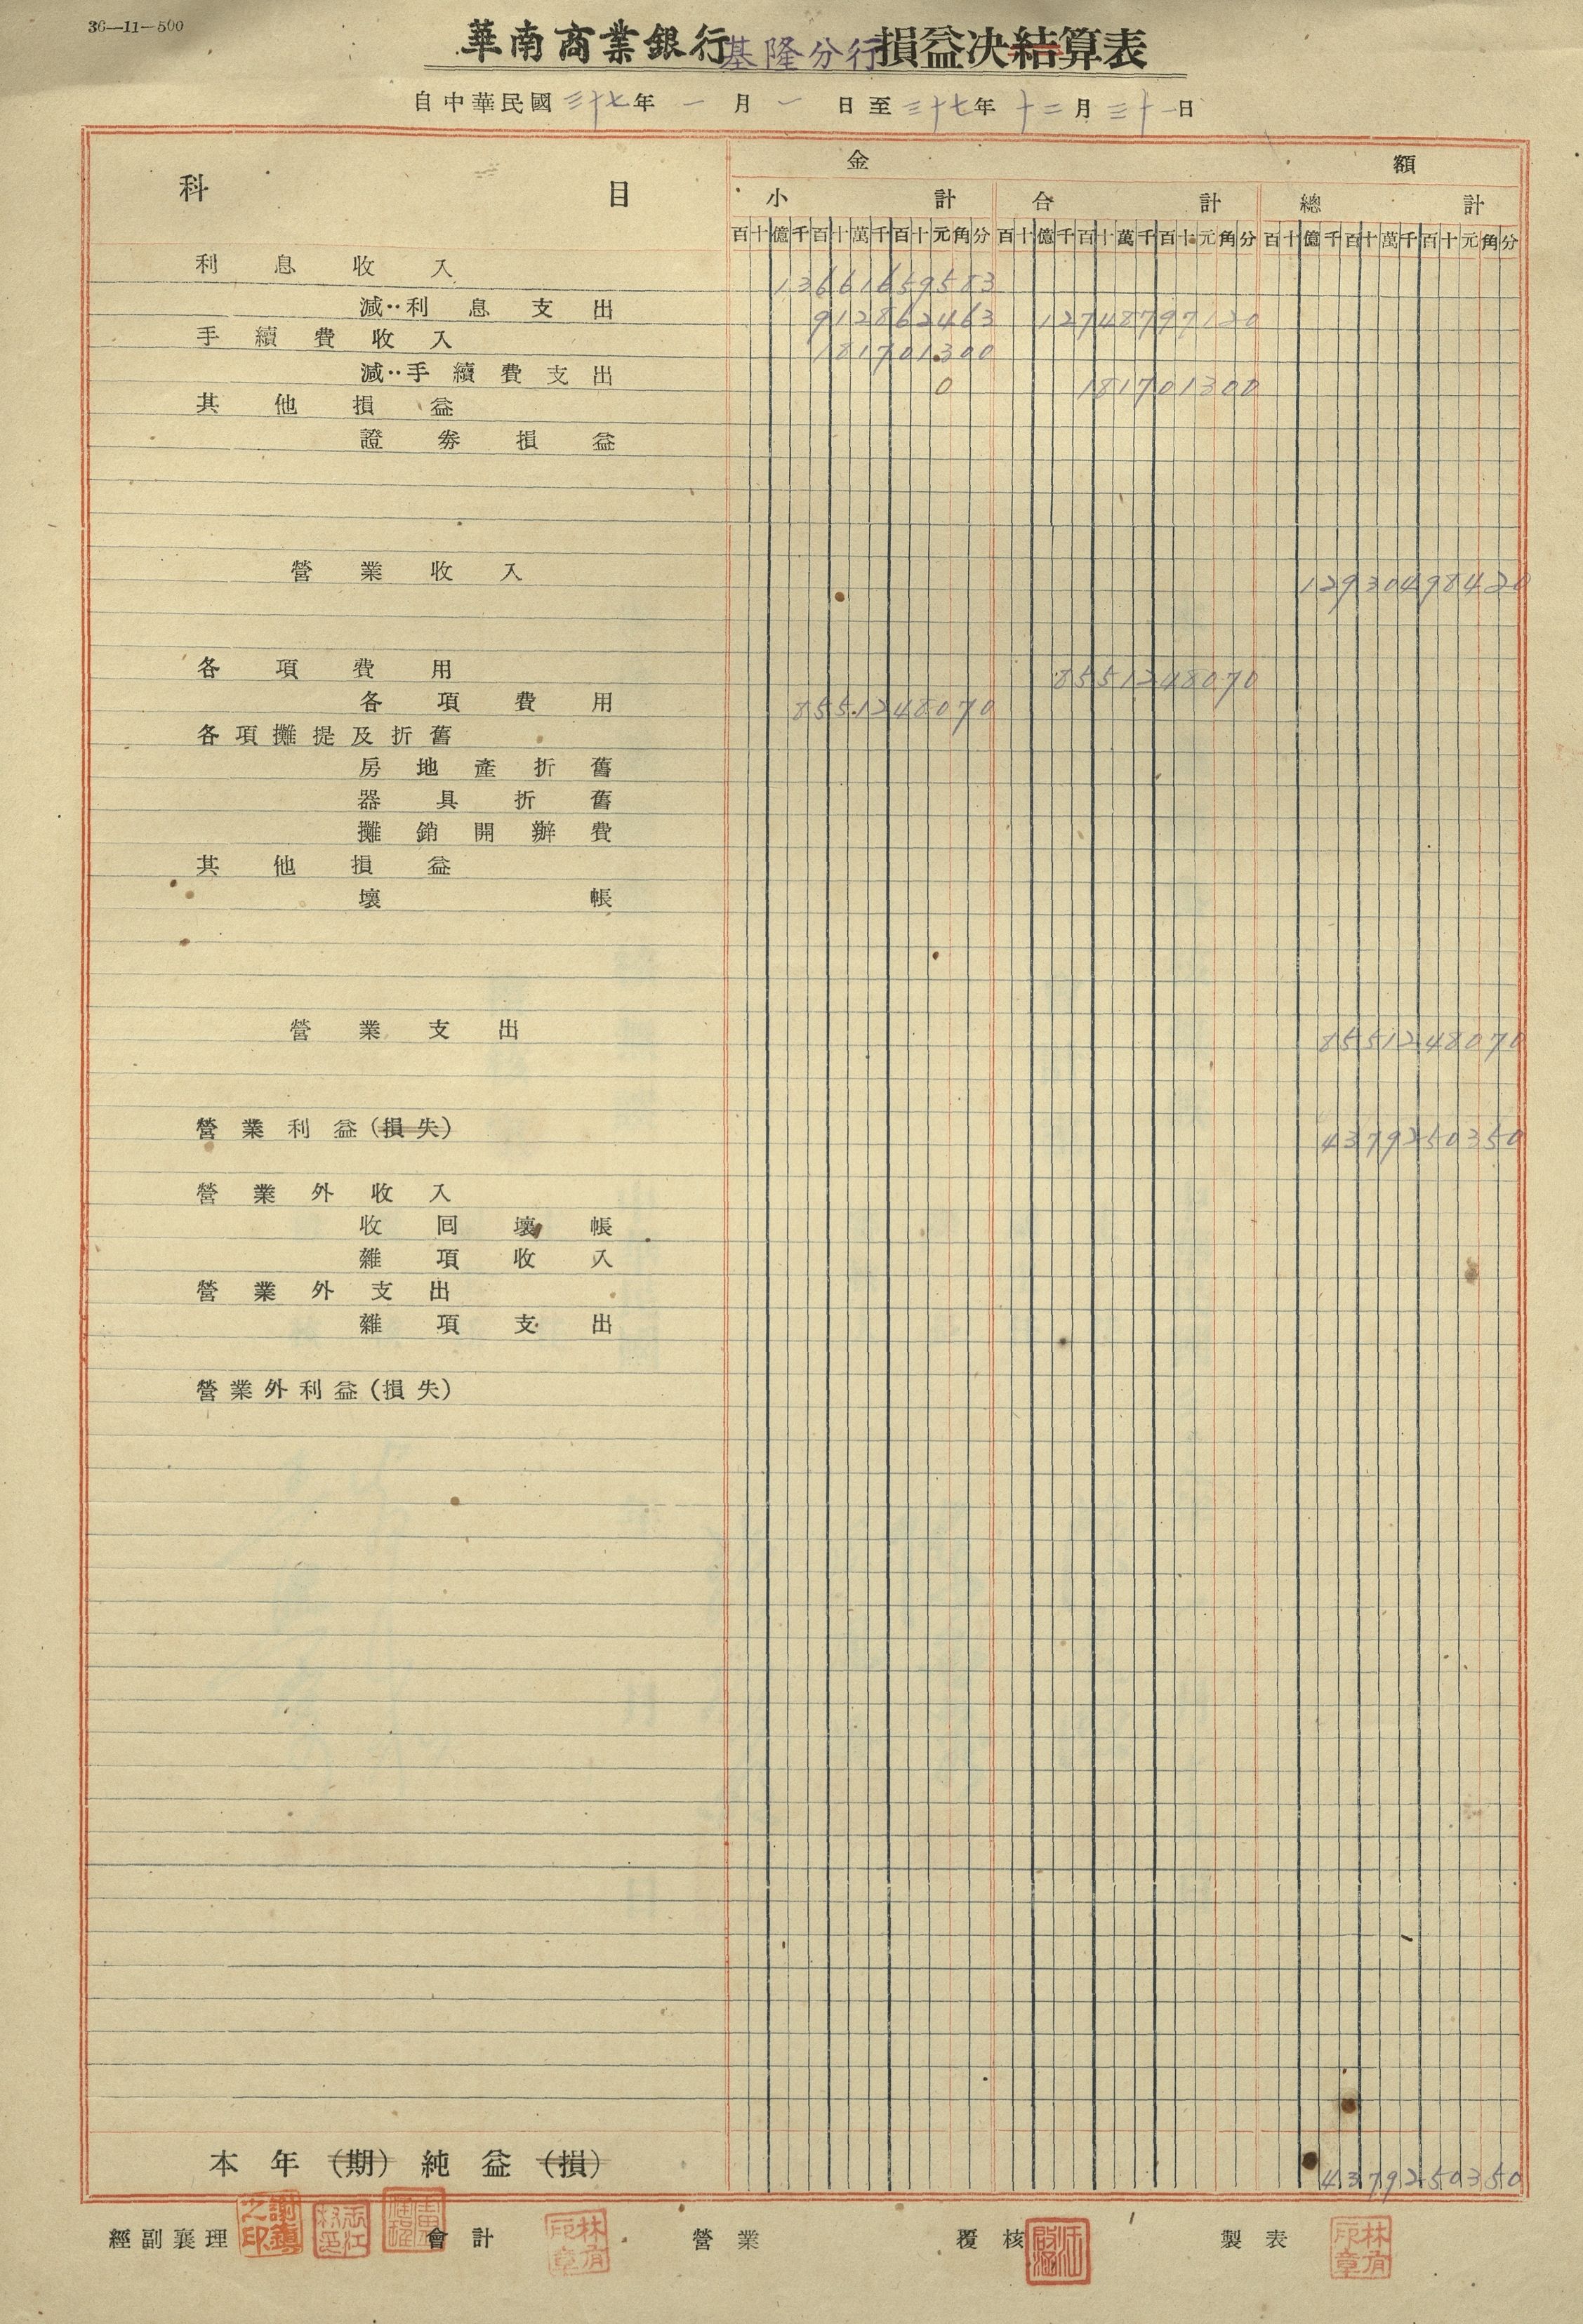 36—11—500
華南商業銀行基隆分行損益决結算表
自中華民國三十七年一月一日至三十七年十二月三十一日
科目 金額
小計 合計 總計
百十億千百十萬千百十元角分 百十億千百十萬千百十元角分 百十億千百十萬千百十元角分
利息收入 13661659583
減‥利息支出 912862463 12748797120
手續費收入 181701300
減‥手續費支出 0 181701300
其他損益
證券損益
營業收入 12930498420
各項費用 8551248070
各項費用 8551248070
各項攤提及折舊
房地產折舊
器具折舊
攤銷開辦費
其他損益
壞帳
營業支出 8551248070
營業利益(損失) 4379250350
營業外收入
收回壞帳
雜項收入
營業外支出
雜項支出
營業外利益(損失)
本年(期)純益(損) 4379250350
經副襄理 會計 林有印章 營業 覆核 製表 林有印章